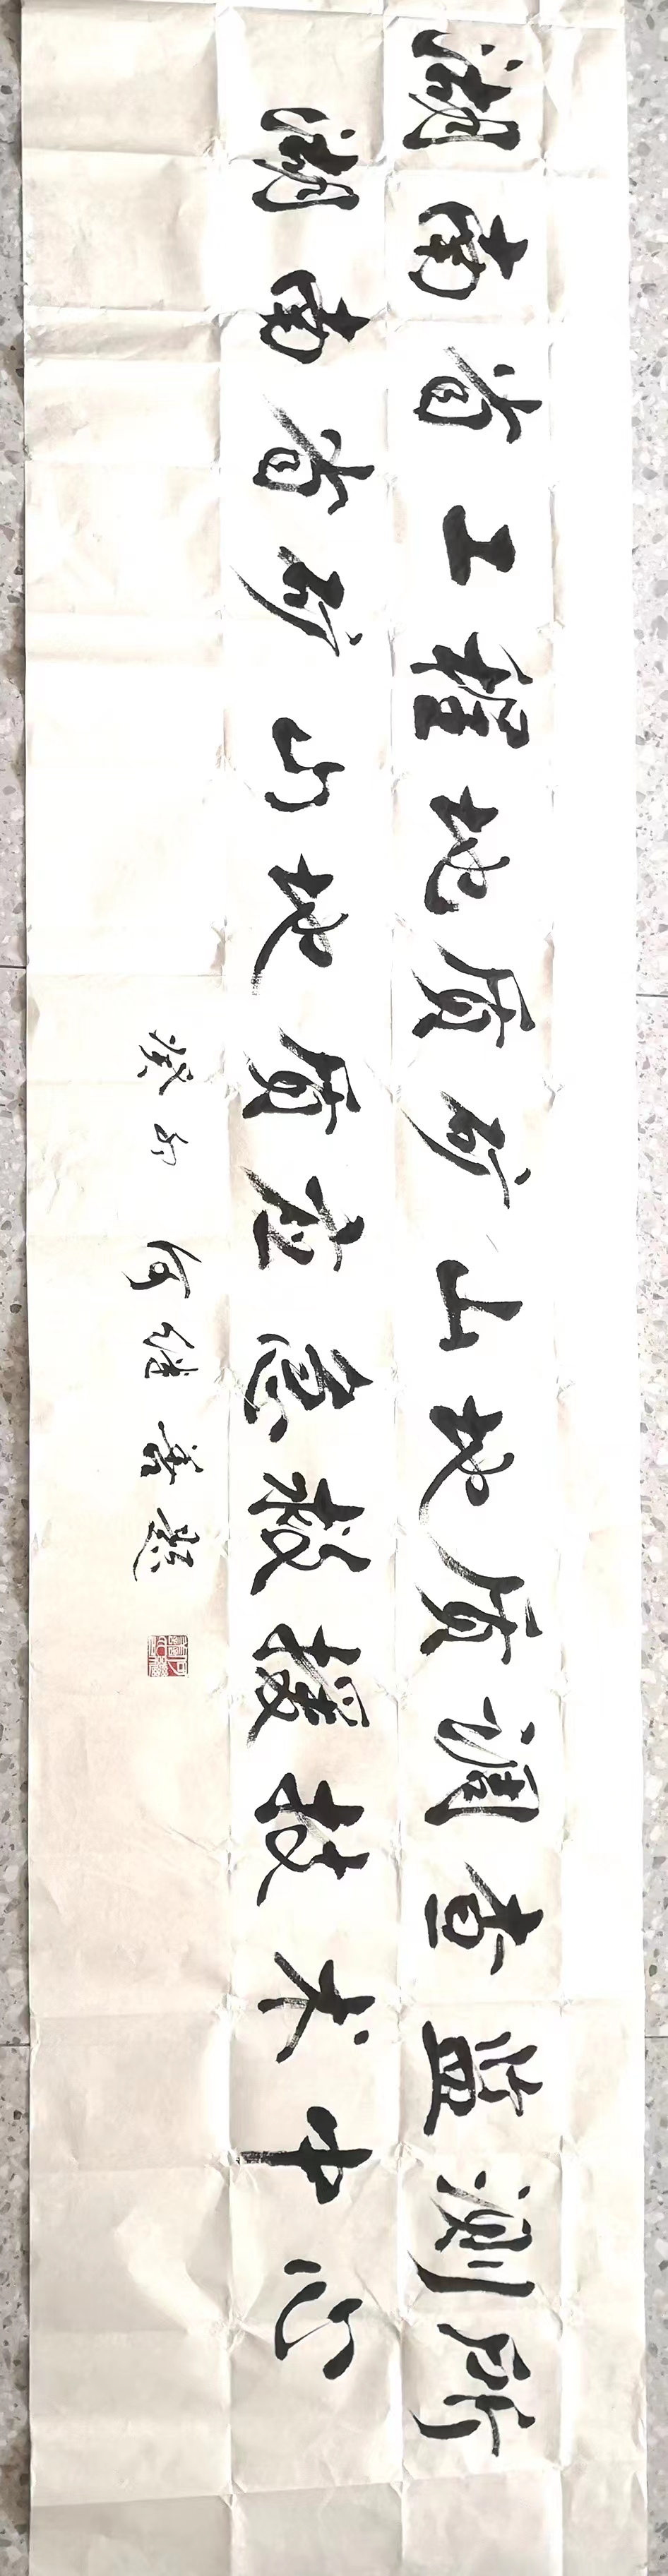 湖南省工程地质矿山地质调查监测所
湖南省矿山地质应急救援技术中心
癸卯 何继善题